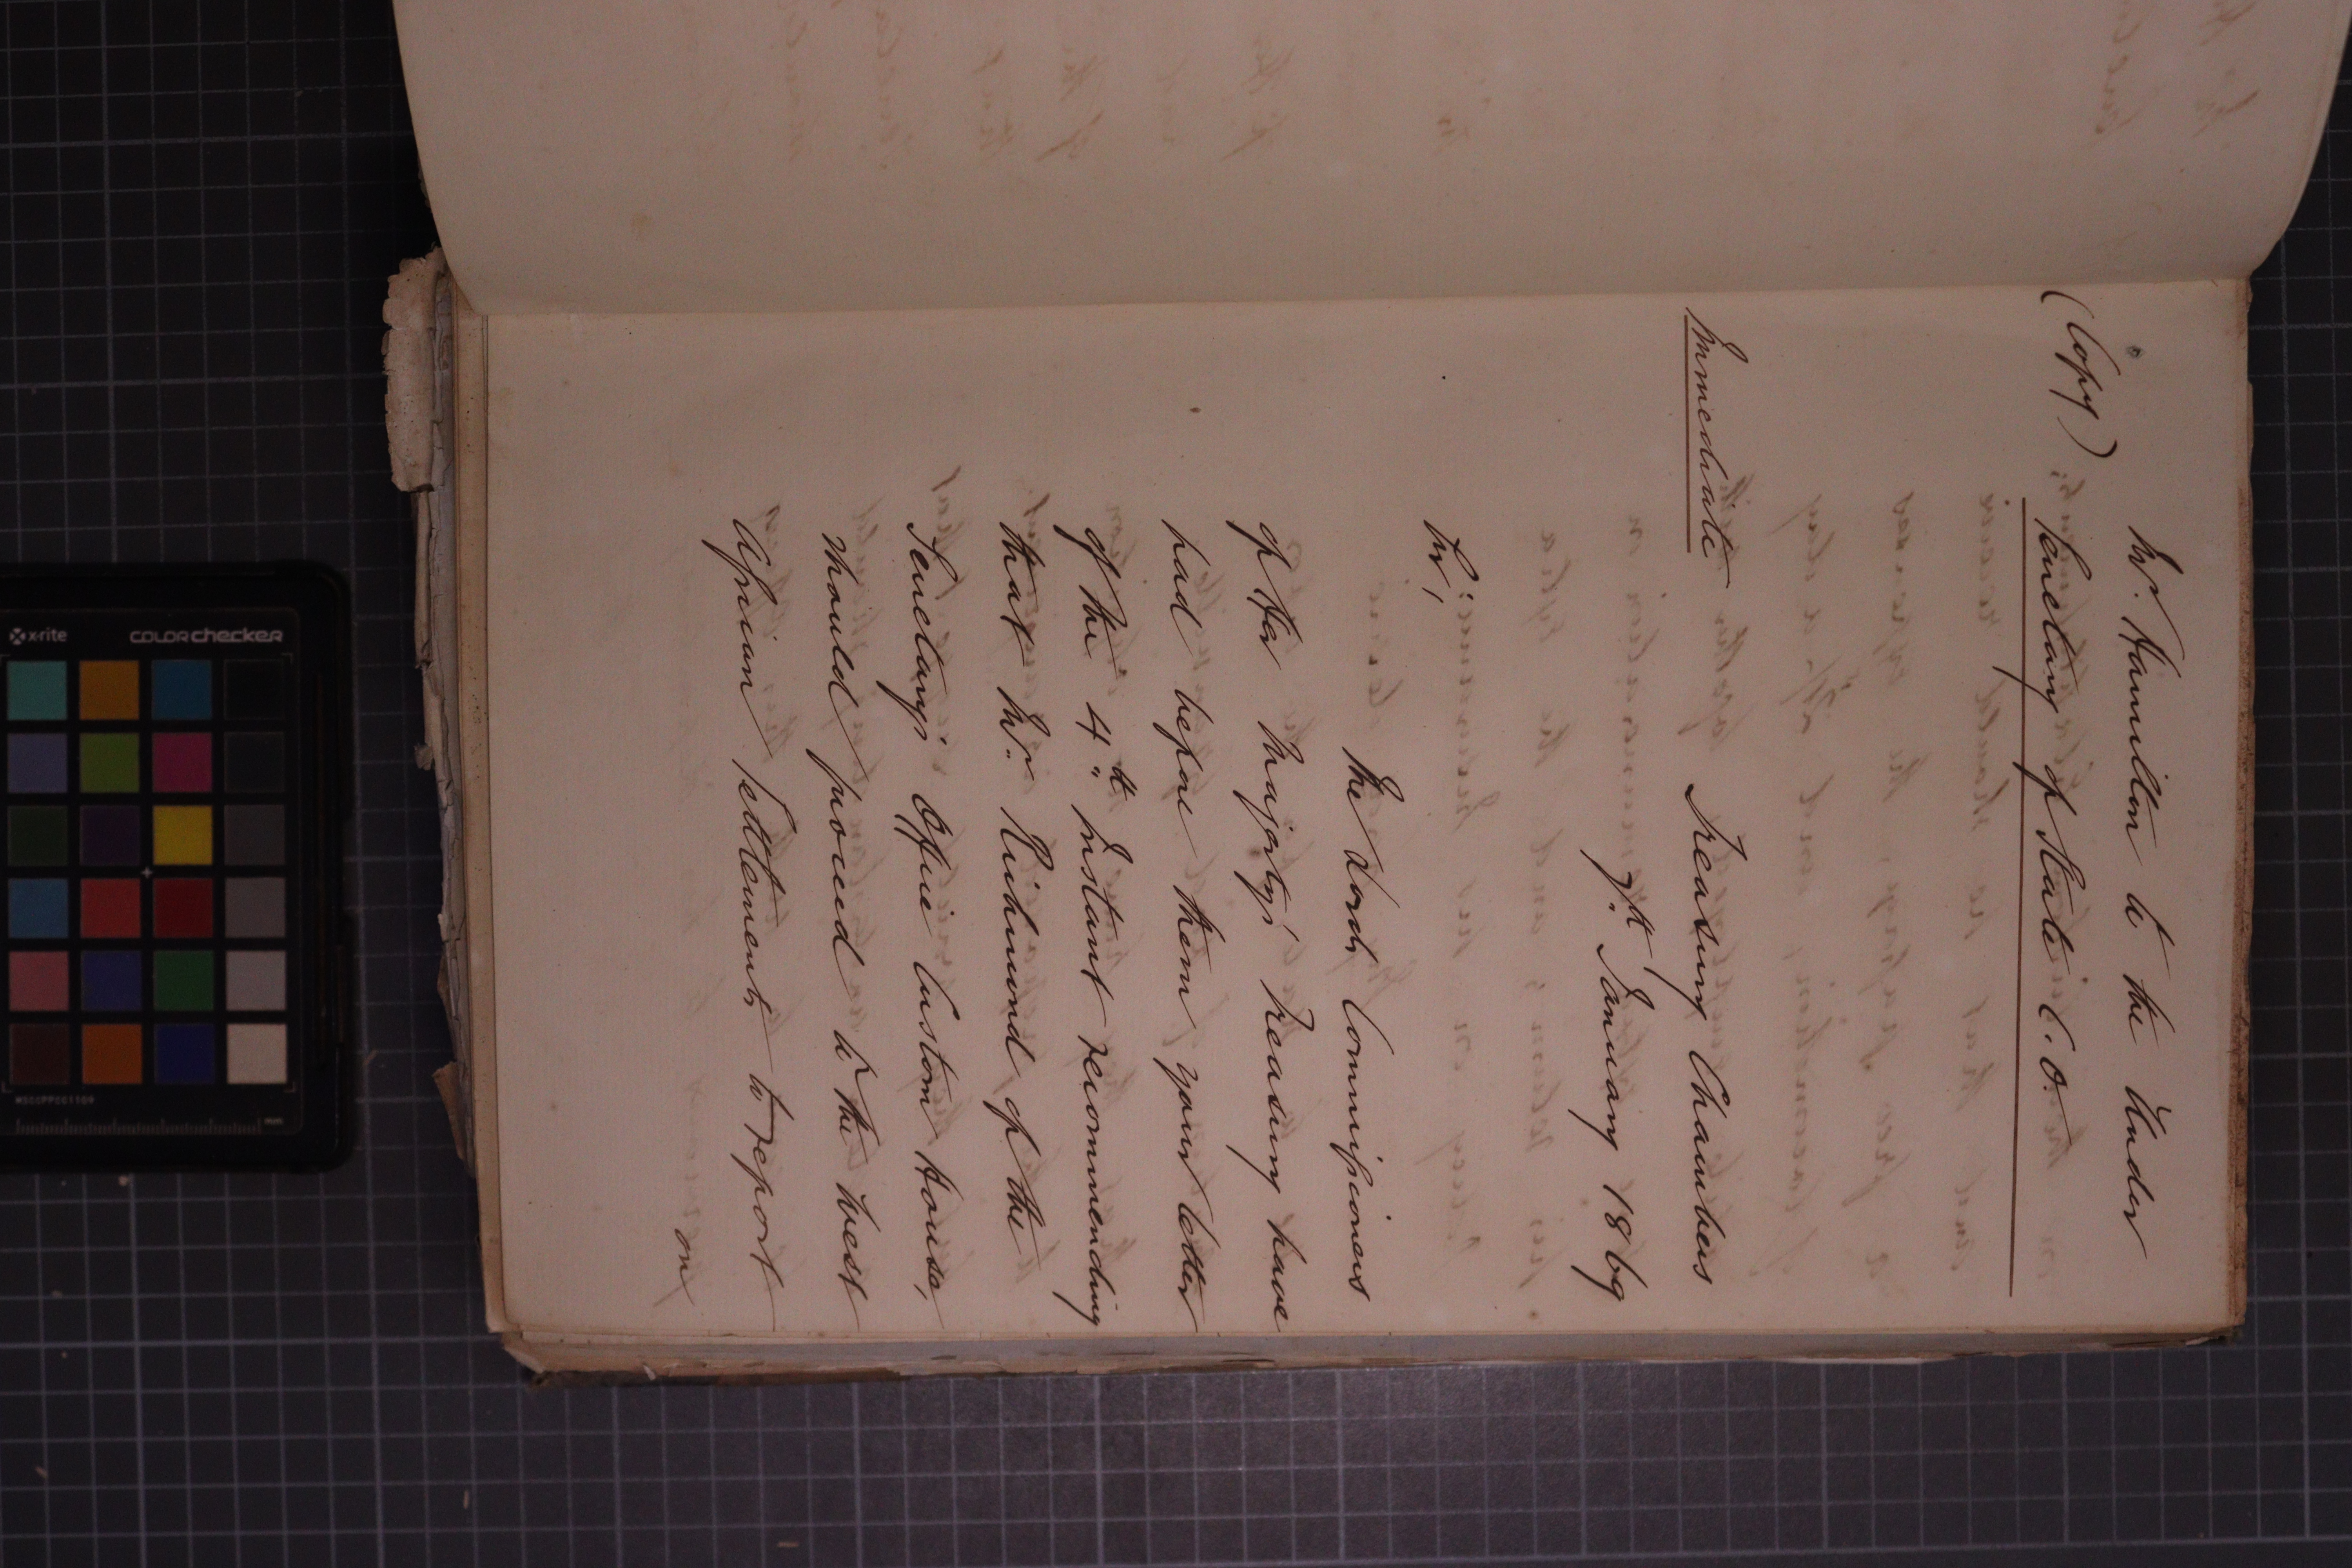 Mr. Hamilton to the Under
(Copy) Secretary of State C.O.
Immediate
Treasury Chambers
7th January 1869
Sir,
The Lords Commissioners
of Her Majesty's Treasury have
had before them your letter
of the 4th Instant recommending
that Mr. Richmond of the
Secretary's Office Custom House,
should proceed to the West
African Settlements to report
on
x-rite COLORchecker
mm